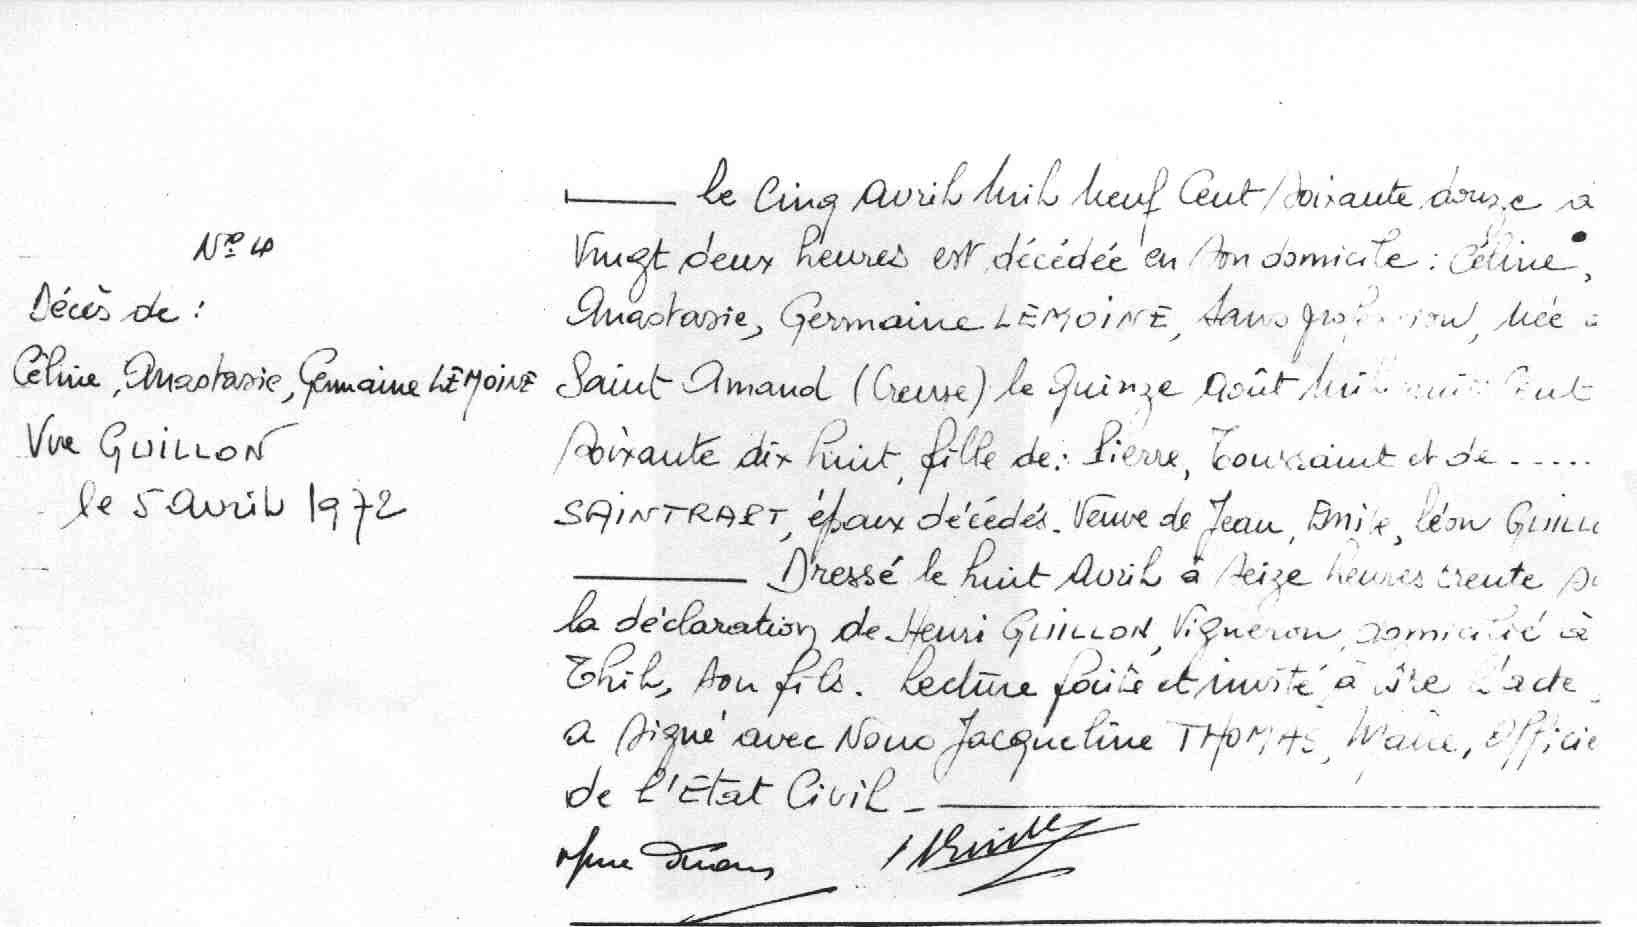 Nº 4
Décès de :
Céline, Anastasie, Germaine LEMOINE
Vve GUILLON
le 5 Avril 1972
le Cinq Avril Mil Neuf Cent Soixante douze à
Vingt deux heures est décédée en son domicile : Céline,
Anastasie, Germaine LEMOINE, Sans profession, née à
Saint Amand (Creuse) le Quinze Août Mil huit Cent
Soixante dix huit, fille de : Pierre, Toussaint et de .....
SAINTRAPT, époux décédés. Veuve de Jean, Emile, Léon GUILL
Dressé le huit Avril à Seize heures trente
la déclaration de Henri GUILLON, Vigneron, domicilié à
Thil, son fils. Lecture faite et invité à lire l'acte
a signé avec Nous Jacqueline THOMAS, Maire, Officie
de l'Etat Civil